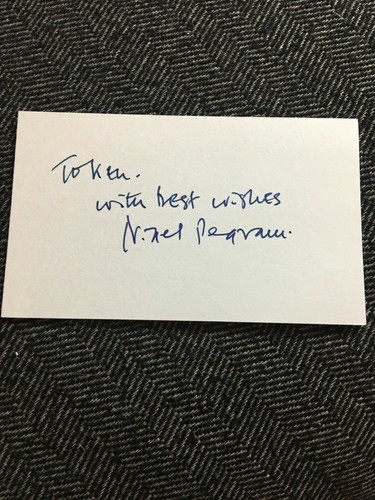 To Ken.
with best wishes
Nigel Pegram.